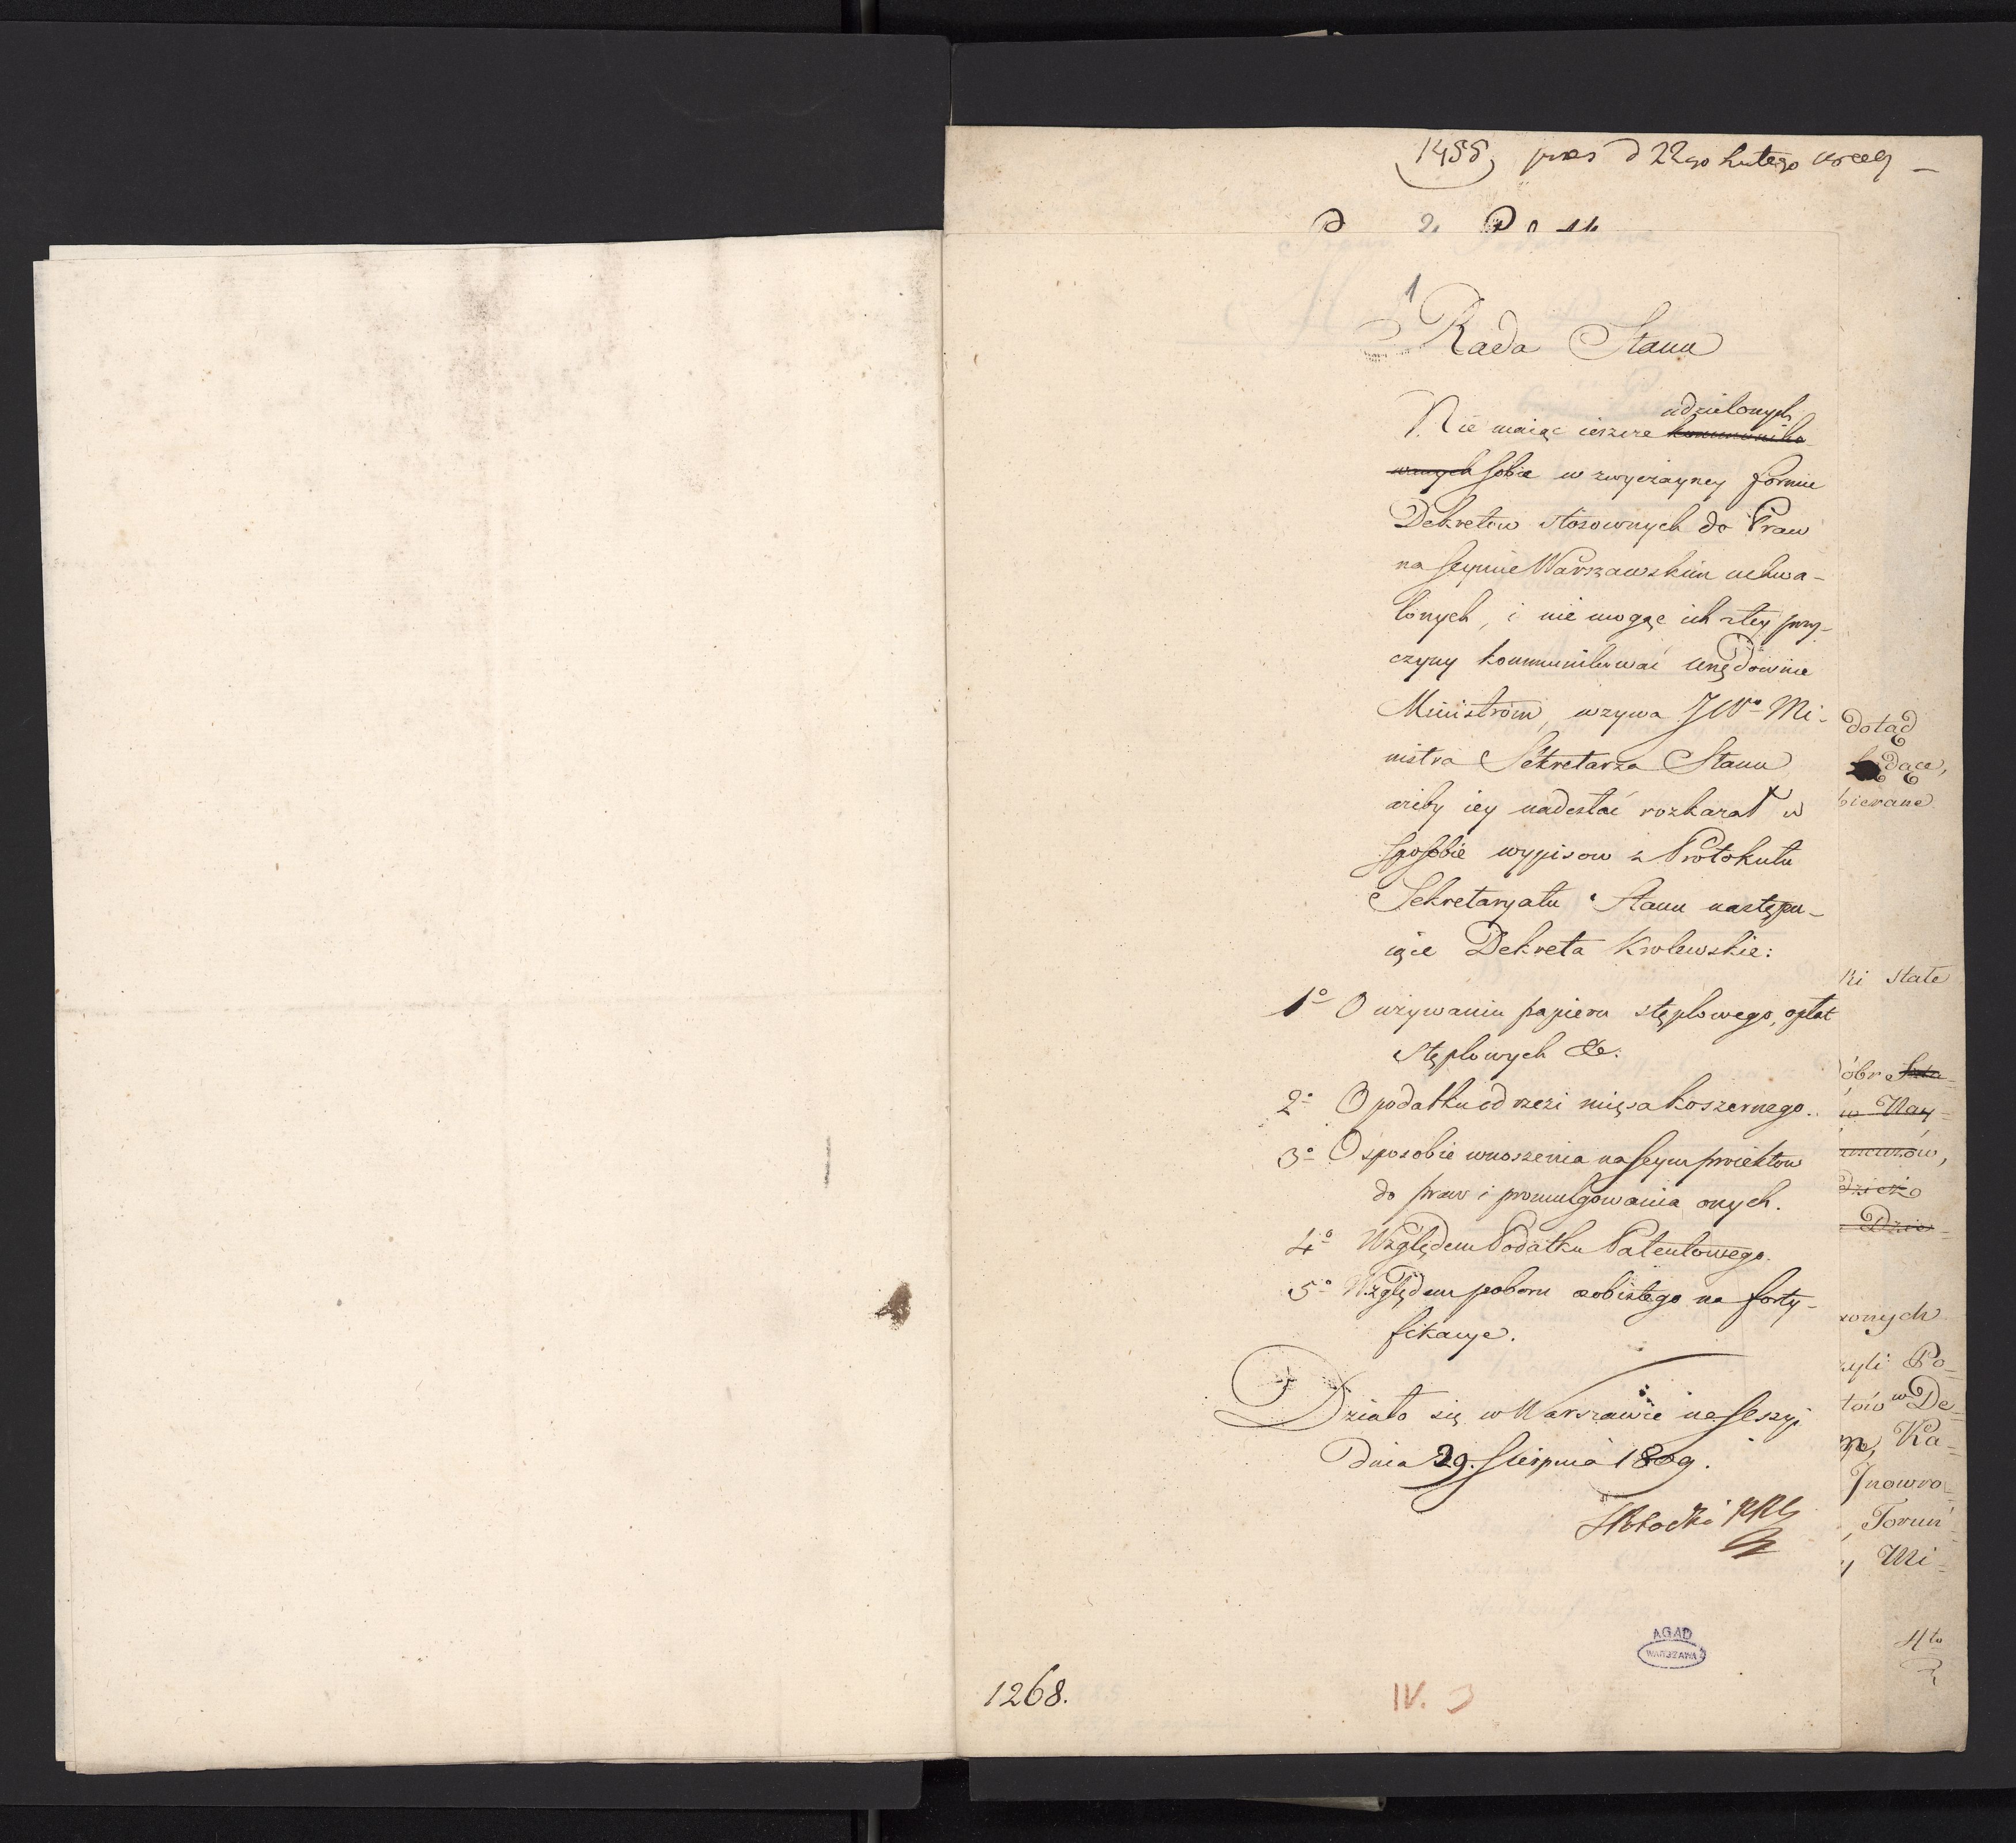 1455, praes d 22go Lutego
1
Rada Stanu
udzielonych
Nie maiąc ieszcze kommuniko
wanych sobie w zwyczayney formie
Dekretow stosownych do Praw
na seymie Warszawskim uchwa-
lonych, i nie mogąc ich z tey przy-
czyny kommunikować urzędownie
Ministróm, wzywa JWo Mi-
nistra Sekretarza Stanu
ażeby iey nadesłać rozkazał w
sposobie wypisow z Protokułu
Sekretaryatu Stanu następu-
iące Dekreta Krolewskie:
1o O używaniu papieru stęplowego, opłat
stęplowych &c:
2o O podatku od rzezi mięsa koszernego.
3o O sposobie wnoszenia na seym proiektow
do praw i promulgowania onych.
4o Względem Podatku Patentowego.
5o Względem poboru osobistego na forty-
fikacye.
Działo się w Warszawie na sessyi
dnia 29. Sierpnia 1809.
SPotocki PRS
AGAD
WARSZAWA
1268.
IV. 3
dotąd
dące,
bierane
ki stałe
óbr
w Nay-
dzież
Dzier-
zonych
zyli Po-
tów w De-
Ka-
Jnowro-
, Toruń-
y Mi-
4to